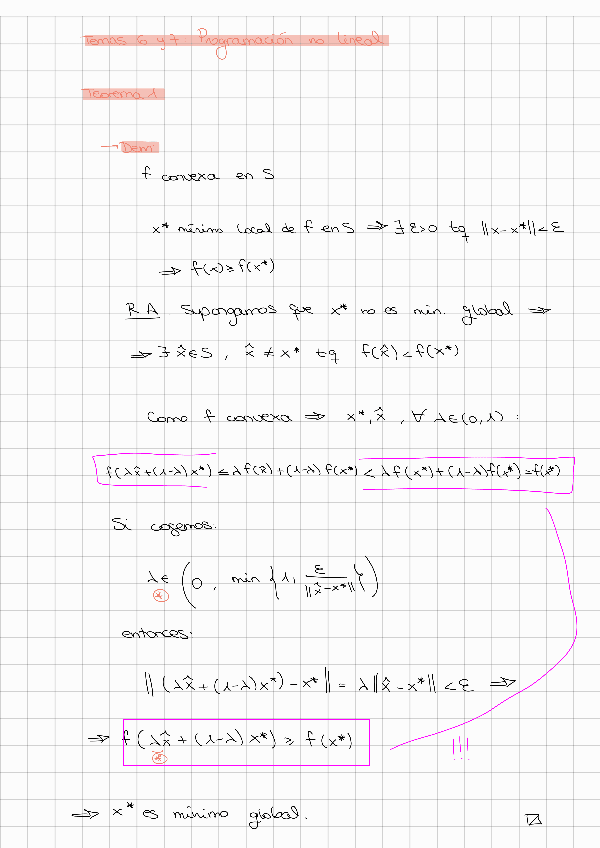 Temas 6 y 7 Programación no lineal
Teorema 1
→ Dem
f convexa en S
x* mínimo local de f en S ⇒ ∃ ε>0 tq ||x-x*||<ε
⇒ f(x)≥f(x*)
RA Supongamos que x* no es min. global ⇒
⇒ ∃ x̂∈S, x̂ ≠ x* tq f(x̂)<f(x*)
Como f convexa ⇒ x*, x̂, ∀ λ∈(0,1):
f(λx̂+(1-λ)x*) ≤ λf(x̂)+(1-λ)f(x*) < λf(x*)+(1-λ)f(x*)=f(x*)
Si cogemos:
λ∈ (0, min {1, ε/||x̂-x*||})
*
entonces:
||(λx̂+(1-λ)x*)-x*|| = λ||x̂-x*|| <ε ⇒
⇒ f(λx̂+(1-λ)x*) ≥ f(x*)
*
!!!
⇒ x* es mínimo global.